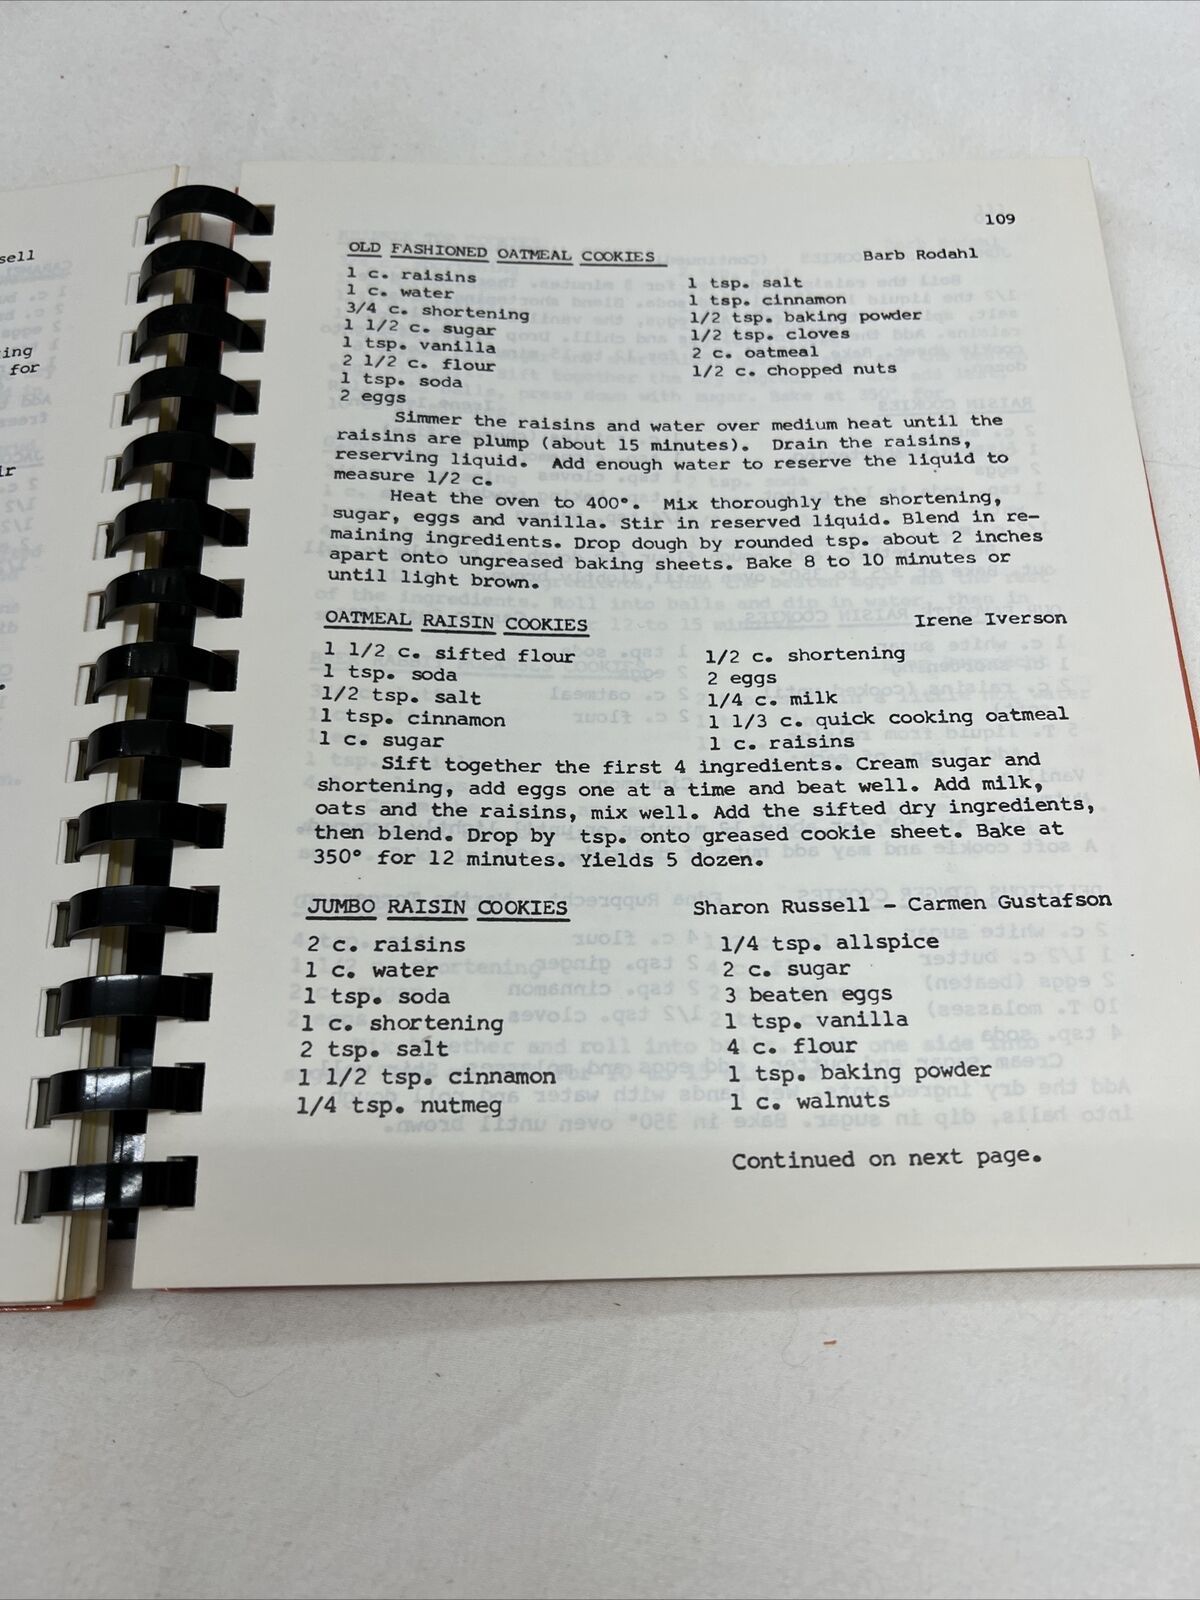 sell
ing
for
109
OLD FASHIONED OATMEAL COOKIES Barb Rodahl
1 c. raisins 1 tsp. salt
1 c. water 1 tsp. cinnamon
3/4 c. shortening 1/2 tsp. baking powder
1 1/2 c. sugar 1/2 tsp. cloves
1 tsp. vanilla 2 c. oatmeal
2 1/2 c. flour 1/2 c. chopped nuts
1 tsp. soda
2 eggs
Simmer the raisins and water over medium heat until the
raisins are plump (about 15 minutes). Drain the raisins,
reserving liquid. Add enough water to reserve the liquid to
measure 1/2 c.
Heat the oven to 400°. Mix thoroughly the shortening,
sugar, eggs and vanilla. Stir in reserved liquid. Blend in re-
maining ingredients. Drop dough by rounded tsp. about 2 inches
apart onto ungreased baking sheets. Bake 8 to 10 minutes or
until light brown.
OATMEAL RAISIN COOKIES Irene Iverson
1 1/2 c. sifted flour 1/2 c. shortening
1 tsp. soda 2 eggs
1/2 tsp. salt 1/4 c. milk
1 tsp. cinnamon 1 1/3 c. quick cooking oatmeal
1 c. sugar 1 c. raisins
Sift together the first 4 ingredients. Cream sugar and
shortening, add eggs one at a time and beat well. Add milk,
oats and the raisins, mix well. Add the sifted dry ingredients,
then blend. Drop by tsp. onto greased cookie sheet. Bake at
350° for 12 minutes. Yields 5 dozen.
JUMBO RAISIN COOKIES Sharon Russell - Carmen Gustafson
2 c. raisins 1/4 tsp. allspice
1 c. water 2 c. sugar
1 tsp. soda 3 beaten eggs
1 c. shortening 1 tsp. vanilla
2 tsp. salt 4 c. flour
1 1/2 tsp. cinnamon 1 tsp. baking powder
1/4 tsp. nutmeg 1 c. walnuts
Continued on next page.